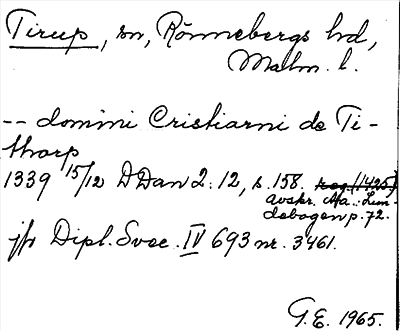 Tirup, sn, Rönnebergs hd,
Malm. l.
-- domini Cristiarni de Ti-
thorp
1339 15/12 DDan 2:12, s. 158. reg (1425)
avskr. Ma.: Lun-
debogen p. 72.
jfr Dipl. Svec. IV 693 nr. 3461.
G.E. 1965.